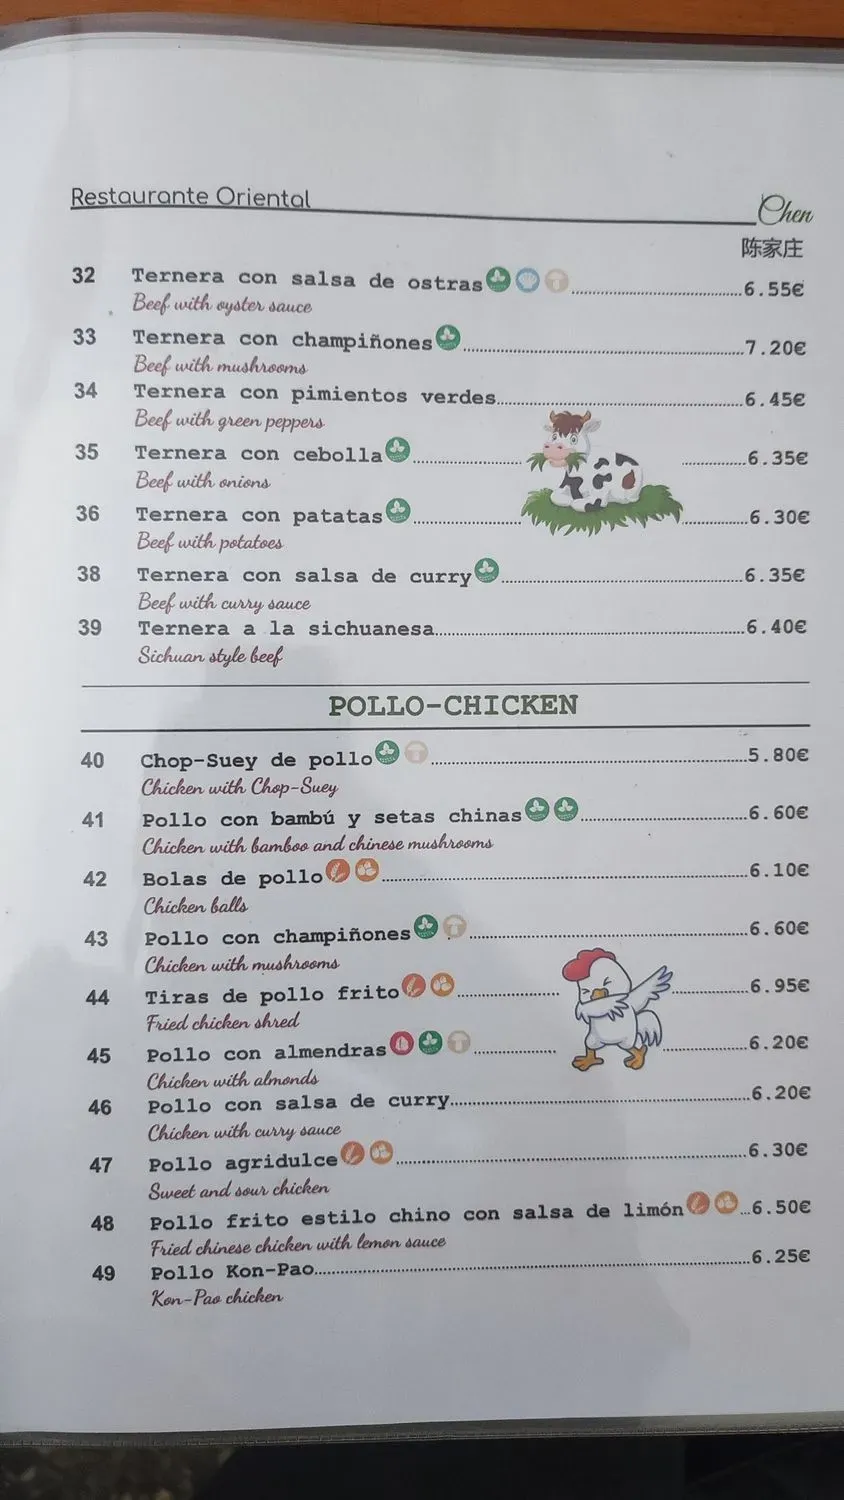 Restaurante Oriental
Chen
陈家庄
32 Ternera con salsa de ostras 6.55€
Beef with oyster sauce
33 Ternera con champiñones 7.20€
Beef with mushrooms
34 Ternera con pimientos verdes 6.45€
Beef with green peppers
35 Ternera con cebolla 6.35€
Beef with onions
36 Ternera con patatas 6.30€
Beef with potatoes
38 Ternera con salsa de curry 6.35€
Beef with curry sauce
39 Ternera a la sichuanesa 6.40€
Sichuan style beef
POLLO-CHICKEN
40 Chop-Suey de pollo 5.80€
Chicken with Chop-Suey
41 Pollo con bambú y setas chinas 6.60€
Chicken with bamboo and chinese mushrooms
42 Bolas de pollo 6.10€
Chicken balls
43 Pollo con champiñones 6.60€
Chicken with mushrooms
44 Tiras de pollo frito 6.95€
Fried chicken shred
45 Pollo con almendras 6.20€
Chicken with almonds
46 Pollo con salsa de curry 6.20€
Chicken with curry sauce
47 Pollo agridulce 6.30€
Sweet and sour chicken
48 Pollo frito estilo chino con salsa de limón 6.50€
Fried chinese chicken with lemon sauce
49 Pollo Kon-Pao 6.25€
Kon-Pao chicken